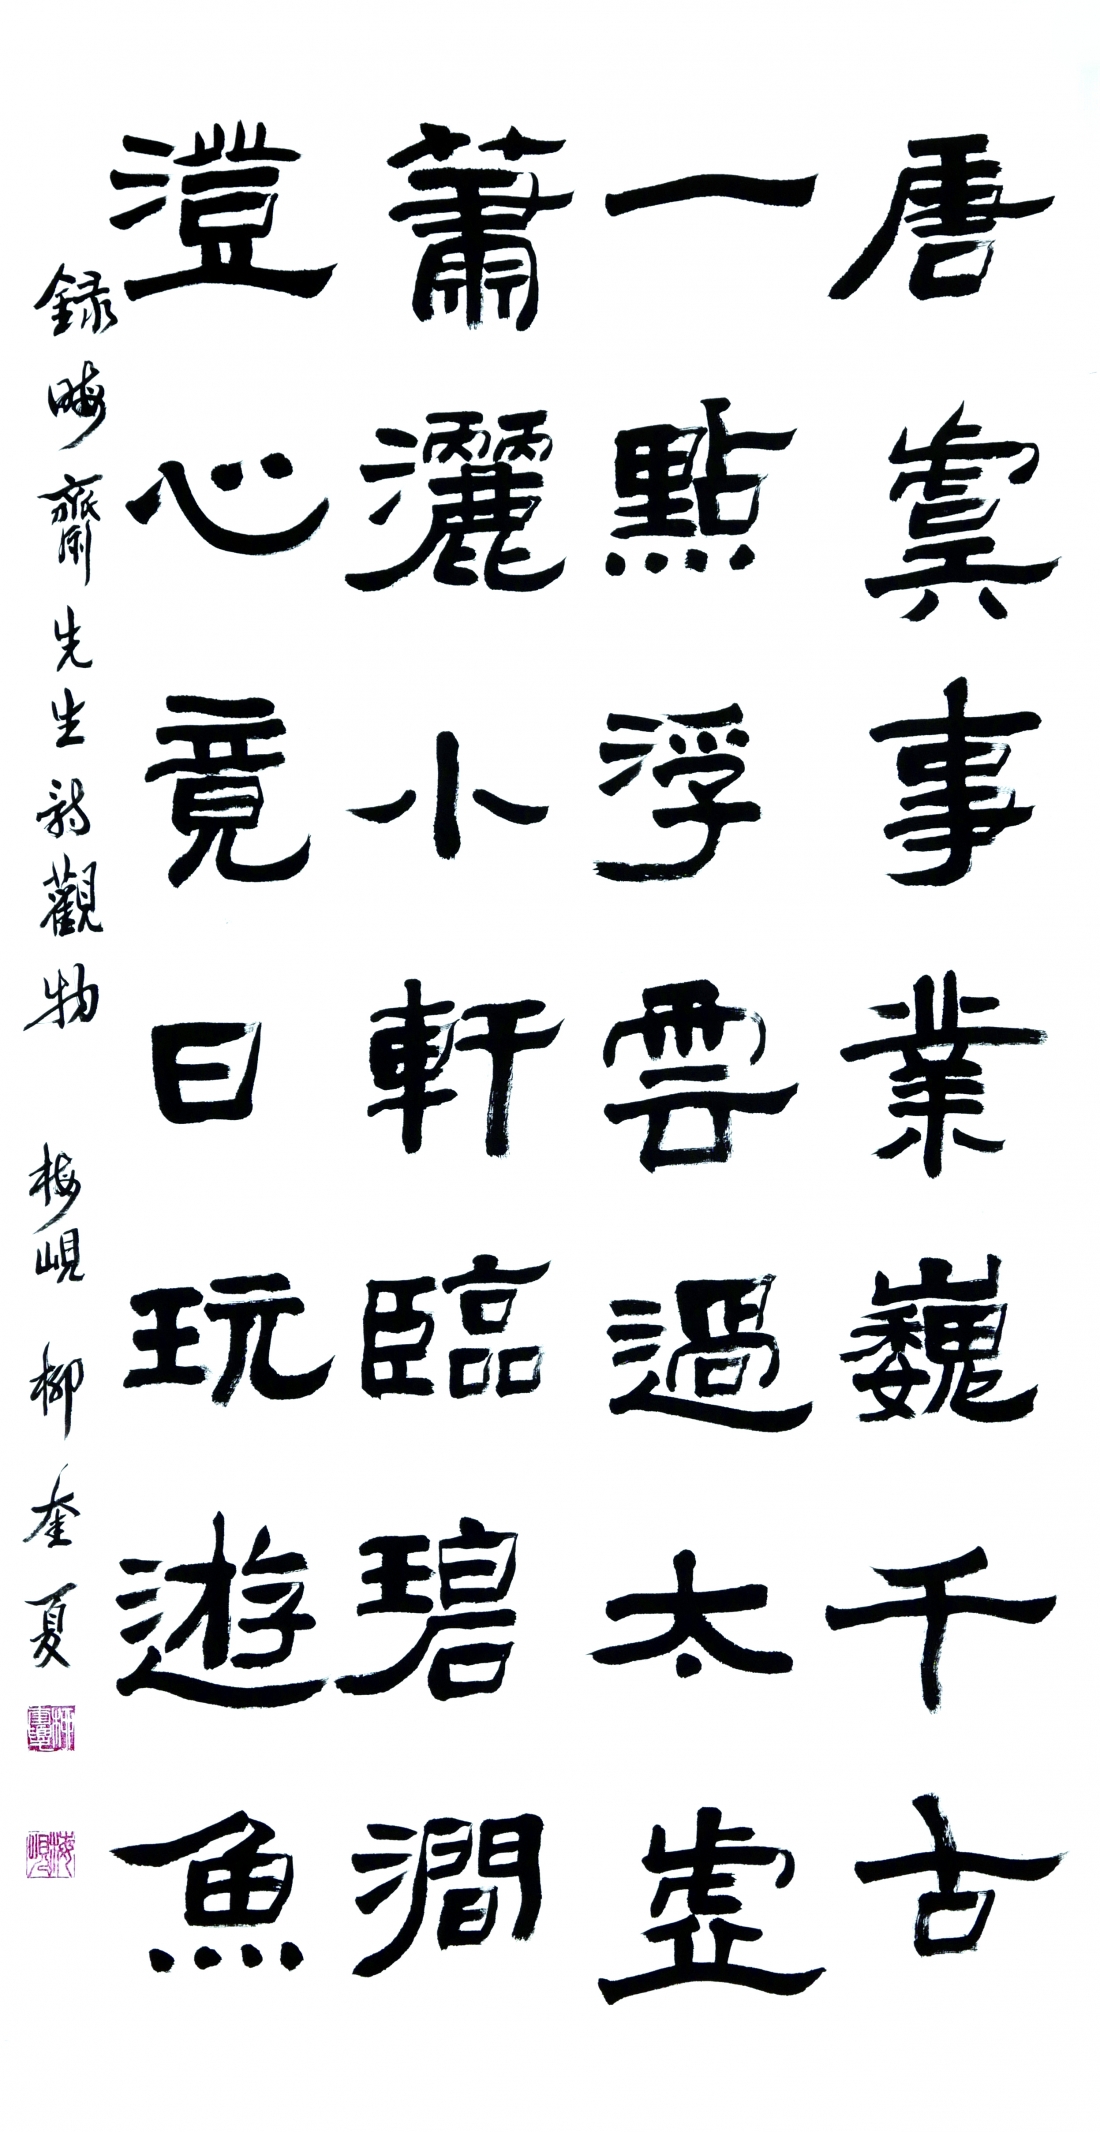 唐虞事業巍千古
一點浮雲過太虛
蕭灑小軒臨碧澗
澄心竟日玩遊魚
錄晦齋先生詩觀物 梅峴 柳奎夏
梅峴